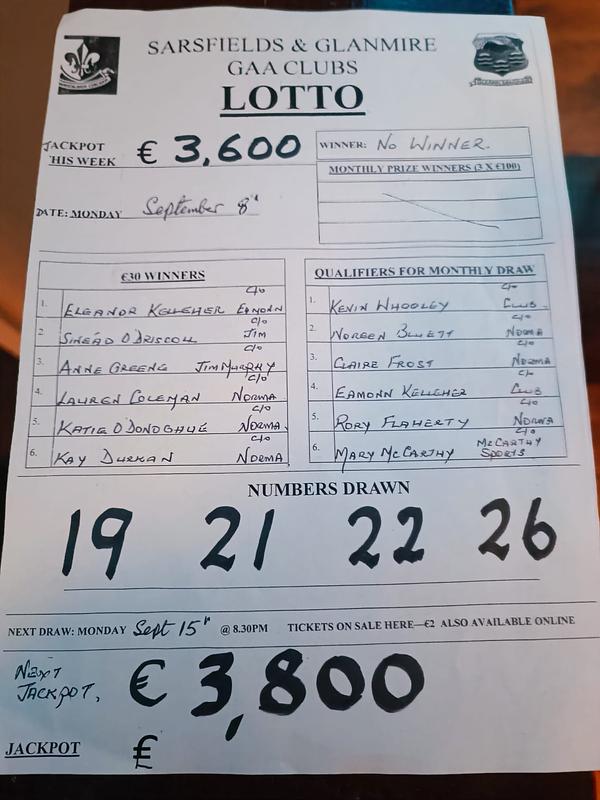 SARSFIELDS & GLANMIRE
GAA CLUBS
LOTTO
JACKPOT THIS WEEK € 3,600
WINNER: NO WINNER.
MONTHLY PRIZE WINNERS (3 X €100)
DATE: MONDAY September 8th
€30 WINNERS
1. ELEANOR KELLEHER c/o EAMONN
2. SINÉAD O'DRISCOLL c/o JIM
3. ANNE GREENE c/o JIM MURPHY
4. LAUREN COLEMAN c/o NORMA
5. KATIE O'DONOGHUE c/o NORMA.
6. KAY DURKAN c/o NORMA
QUALIFIERS FOR MONTHLY DRAW
1. KEVIN WHOOLEY c/o CLUB.
2. NOREEN BLUETT c/o NORMA
3. CLAIRE FROST c/o NORMA
4. EAMONN KELLEHER c/o CLUB
5. RORY FLAHERTY c/o NORMA
6. MARY McCARTHY c/o McCARTHY SPORTS
NUMBERS DRAWN
19 21 22 26
NEXT DRAW: MONDAY Sept 15th @ 8.30PM TICKETS ON SALE HERE—€2 ALSO AVAILABLE ONLINE
NEXT JACKPOT, € 3,800
JACKPOT €